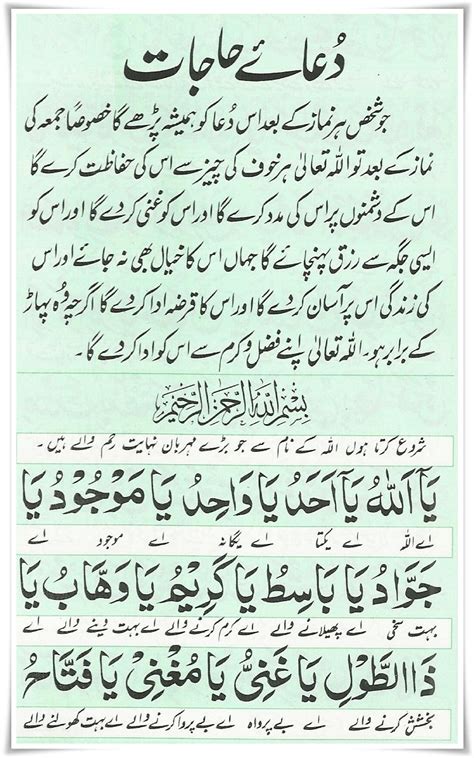 دُعائے حاجات
جو شخص ہر نماز کے بعد اس دُعا کو ہمیشہ پڑھے گا خصوصًا جمعہ کی
نماز کے بعد تو اللہ تعالیٰ ہر خوف کی چیز سے اس کی حفاظت کرے گا
اس کے دشمنوں پر اس کی مدد کرے گا اور اس کو غنی کر دے گا اور اس کو
ایسی جگہ سے رزق پہنچائے گا جہاں اس کا خیال بھی نہ جائے اور اس
کی زندگی اس پر آسان کر دے گا اور اس کا قرضہ ادا کر دے گا اگرچہ وُہ پہاڑ
کے برابر ہو۔ اللہ تعالیٰ اپنے فضل و کرم سے اس کو ادا کر دے گا۔
بِسْمِ اللهِ الرَّحْمٰنِ الرَّحِيْمِ
شروع کرتا ہوں اللہ کے نام سے جو بڑے مہربان نہایت رحم والے ہیں۔
يَآ اَللهُ يَآ اَحَدُ يَا وَاحِدُ يَا مَوْجُوْدُ يَا
اے اللہ اے یکتا اے یگانہ اے موجود اے
جَوَّادُ يَا بَاسِطُ يَا كَرِيْمُ يَا وَهَّابُ يَا
بہت سخی اے پھیلانے والے اے کرم کرنے والے اے بہت دینے والے اے
ذَاالطَّوْلِ يَا غَنِيُّ يَا مُغْنِيْ يَا فَتَّاحُ
بخشش کرنے والے اے بے پرواہ اے بے پروا کرنے والے اے بہت کھولنے والے